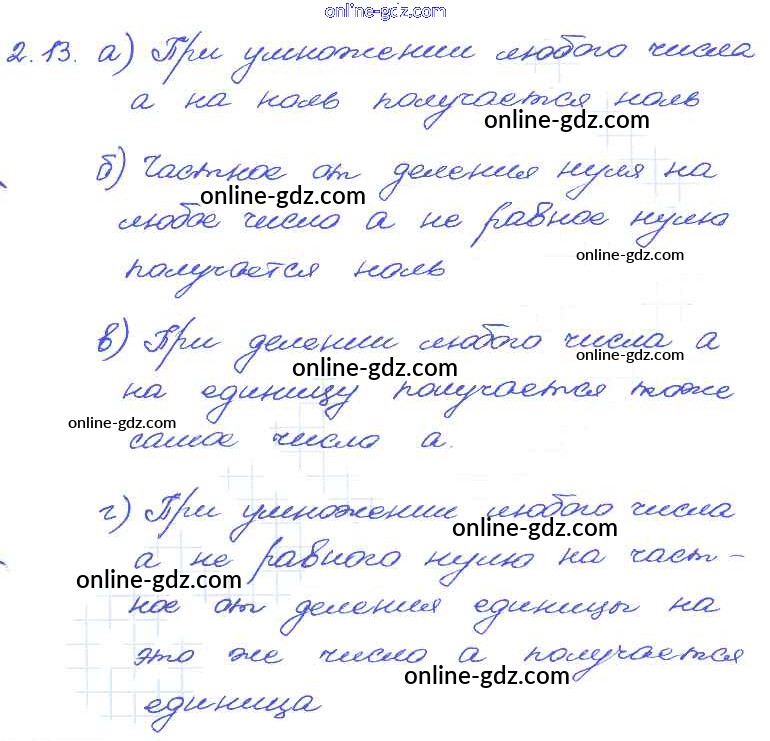 online-gdz.com
2.13. а) При умножении любого числа
а на ноль получается ноль
online-gdz.com
б) Частное от деления нуля на
online-gdz.com
любое число а не равное нулю
online-gdz.com
получается ноль
в) При делении любого числа а
online-gdz.com
online-gdz.com
на единицу получается тоже
online-gdz.com
самое число а.
г) При умножении любого числа
online-gdz.com
а не равного нулю на част-
online-gdz.com
ное от деления единицы на
это же число а получается
online-gdz.com
единица